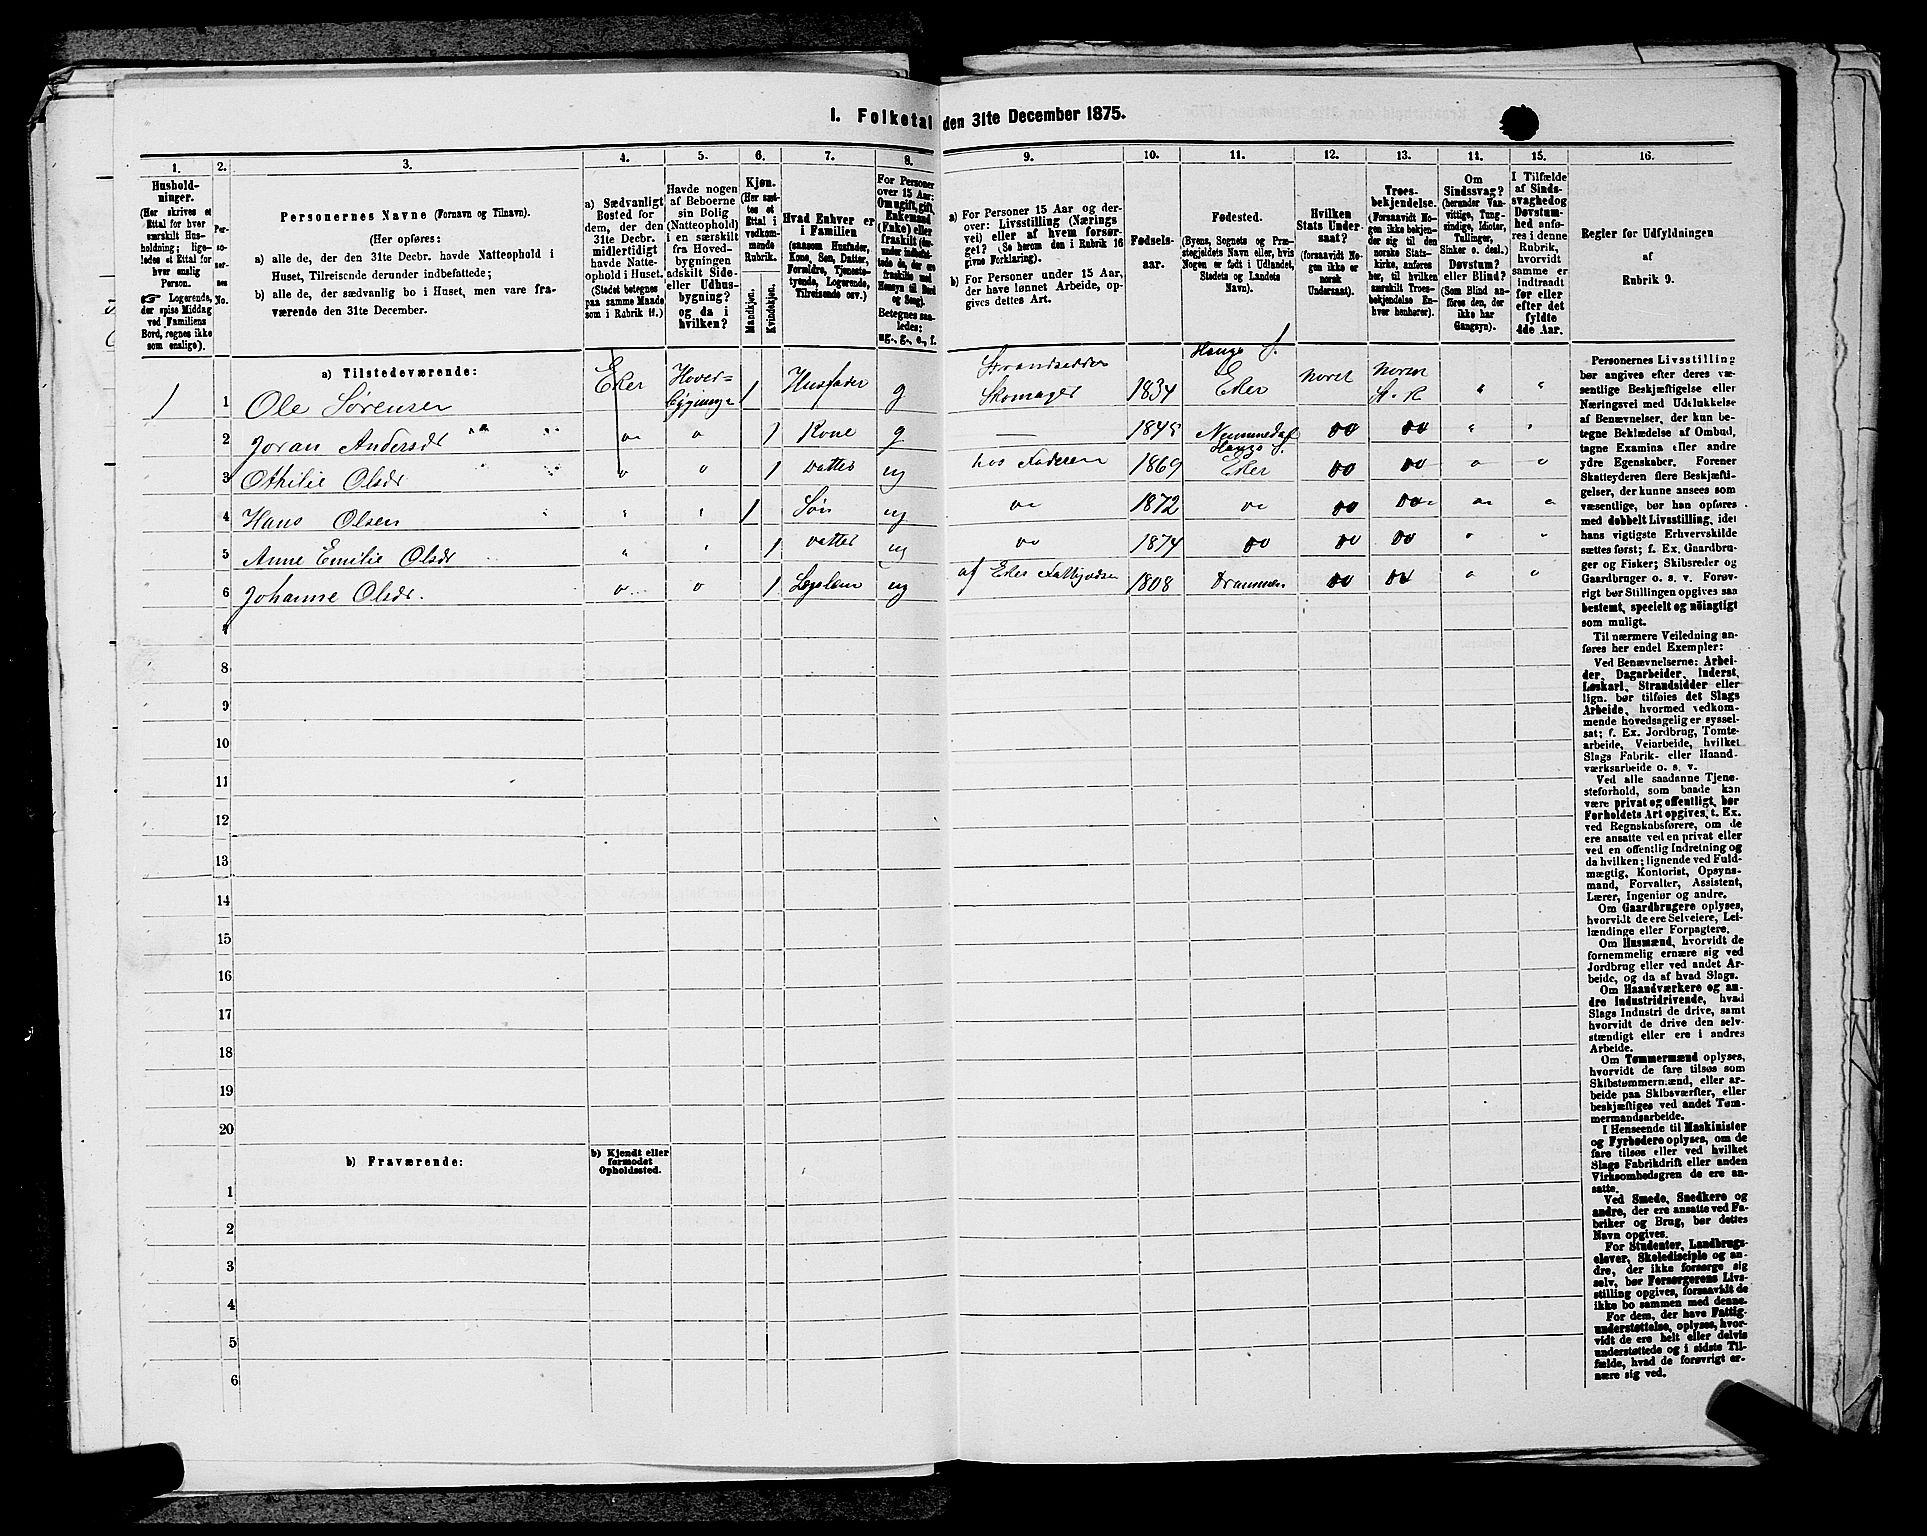 I. Folketal den 31te December 1875.
1. 2. 3. 4. 5. 6. 7. 8. 9. 10. 11. 12. 13. 14. 15. 16.
Hushold-
ninger.
(Her skrives et
Ettal for hver
særskilt Hus-
holdning; lige-
ledes et Ettal for
hver enslig
Person.
☞ Logerende,
der spise Middag
ved Familiens
Bord, regnes ikke
som enslige).
Per-
so-
ner-
nes
No.
Personernes Navne (Fornavn og Tilnavn).
(Her opføres:
a) alle de, der den 31te Decbr. havde Natteophold i
Huset, Tilreisende derunder indbefattede;
b) alle de, der sædvanlig bo i Huset, men vare fra-
værende den 31te December.
a) Sædvanligt
Bosted for
dem, der den
31te Decbr.
midlertidigt
havde Natte-
ophold i Huset.
(Stedet betegnes
paa samme Maade
som i Rubrik 11.)
Havde nogen
af Beboerne
sin Bolig
(Natteophold)
i en særskilt
fra Hoved-
bygningen
adskilt Side-
eller Udhus-
bygning?
og da i
hvilken?
Kjøn.
(Her sæt-
tes et
Ettal i
vedkom-
mende
Rubrik.
Mandkjøn.
Kvindekjøn.
Hvad Enhver er
i Familien
(saasom Husfader,
Kone, Søn, Datter,
Forældre, Tjeneste-
tyende, Logerende,
Tilreisende osv.)
For Personer
over 15 Aar:
Om ugift, gift,
Enkemand
(Enke) eller
fraskilt
Betegnes saa-
ledes:
ug., g., e., f.
a) For Personer 15 Aar og der-
over: Livsstilling (Nærings
vei) eller af hvem forsør-
get? (Se herom den i Rubrik 16
givne Forklaring).
b) For Personer under 15 Aar,
der have lønnet Arbeide, op-
gives dettes Art.
Fødsels-
aar.
Fødested.
(Byens, Sognets og Præ-
stegjeldets Navn eller, hvis
Nogen er født i Udlandet,
Stedets og Landets
Navn).
Hvilken
Stats Under-
saat?
(forsaavidt No-
gen ikke er
norsk
Undersaat).
Troes-
bekjendelse.
(Forsaavidt No-
gen ikke bekjen-
der sig til den
norske Stats-
kirke, anføres
her, til hvilken
særskilt Troes-
bekjendelse En-
hver henhører).
Om
Sindssvag?
(herunder Van-
vittige, Tung-
sindige, Idioter,
Tullinger,
Sinker o. desl.)
Døvstum?
eller Blind?
(Som Blind an-
føres den, der
ikke har
Gangsyn).
I Tilfælde
af Sinds-
svaghed og
Døvstum-
hed anfø-
res i denne
Rubrik,
hvorvidt
samme er
indtraadt
før eller
efter det
fyldte
4de Aar.
Regler for Udfyldningen
af
Rubrik 9.
a) Tilstedeværende:
1 1 Ole Sørensen Eker Hoved- bygning 1 Husfader g Strandsidder Skomager 1834 Haugs S. Eker Norsk Norsk St. K " "
2 Joran Andersdr " " 1 Kone g — 1845 Nummedal do do " "
3 Othilie Olsdr " " 1 Datter ug hos Faderen 1869 Haugs S. Eker do do " "
4 Hans Olsen " " 1 Søn ug do 1872 do do do " "
5 Anne Emilie Olsdr " " 1 Datter ug do 1874 do do do " "
6 Johanne Olsdr. " " 1 Lægslem ug af Eker Fattigvæsen 1808 Drammen do do " "
7
8
9
10
11
12
13
14
15
16
17
18
19
20
b) Fraværende:
b) Kjendt eller
formodet
Opholdssted.
1
2
3
4
5
6
Personernes Livsstilling
bør angives efter deres væ-
sentlige Beskjæftigelse eller
Næringsvei med Udelukkelse
af Benævnelser, der kun be-
tegne Beklædelse af Ombud,
tagne Examina eller andre
ydre Egenskaber. Forener
Skatteyderen flere Beskjæfti-
gelser, der kunne ansees som
væsentlige, bør han opføres
med dobbelt Livsstilling, idet
hans vigtigste Erhvervskilde
sættes først; f. Ex. Gaardbru-
ger og Fisker; Skibsreder og
Gaardbruger o. s. v. Forøv-
rigt bør Stillingen opgives saa
bestemt, specielt og nöiagtigt
som muligt.
Til nærmere Veiledning an-
føres her endel Exempler:
Ved Benævnelserne: Arbei-
der, Dagarbeider, Inderst,
Løskarl, Strandsidder eller
lign. bør tilføies det Slags
Arbeide, hvormed vedkom-
mende hovedsagelig er syssel-
sat; f. Ex. Jordbrug, Tomte-
arbeide, Veiarbeide, hvilket
Slags Fabrik- eller Haand-
værksarbeide o. s. v.
Ved alle saadanne Tjene-
steforhold, som baade kan
være privat og offentligt, bør
Forholdets Art opgives, t. Ex.
ved Regnskabsførere, om de
ere ansatte ved en privat eller
ved en offentlig Indretning og
da hvilken; lignende ved Fuld-
mægtig, Kontorist, Opsyns-
mand, Forvalter, Assistent,
Lærer, Ingeniør og andre.
Om Gaardbrugere oplyses,
hvorvidt de ere Selveiere, Lei-
lændinge eller Forpagtere.
Om Husmænd, hvorvidt de
fornemmelig ernære sig ved
Jordbrug eller ved andet Ar-
beide, og da af hvad Slags.
Om Haandværkere og an-
dre Industridrivende, hvad
Slags Industri de drive, samt
hvorvidt de drive den selv-
stændigt eller ere i andres
Arbeide.
Om Tømmermænd oplyses,
hvorvidt de fare tilsøs som
Skibstømmermænd, eller ar-
beide paa Skibsværfter, eller
beskjæftiges ved andet Tøm-
mermandsarbeide.
I Henseende til Maskinister
og Fyrbødere oplyses, om de
fare tilsøs eller ved hvilket
Slags Fabrikdrift eller anden
Virksomhedsgren de ere an-
satte.
Ved Smede, Snedkere og
andre, der ere ansatte ved Fa-
briker og Brug, bør dettes
Navn opgives.
For Studenter, Landbrugs-
elever, Skoledisciple og an-
dre, der ikke forsørge sig
selv, bør Forsørgerens Livs-
stilling opgives, forsaavidt de
ikke bo sammen med denne.
For dem, der have Fattig-
understøttelse, oplyses, hvor-
vidt de ere helt eller delvis
understøttede og i sidste Til-
fælde, hvad de forøvrigt er-
nære sig ved.